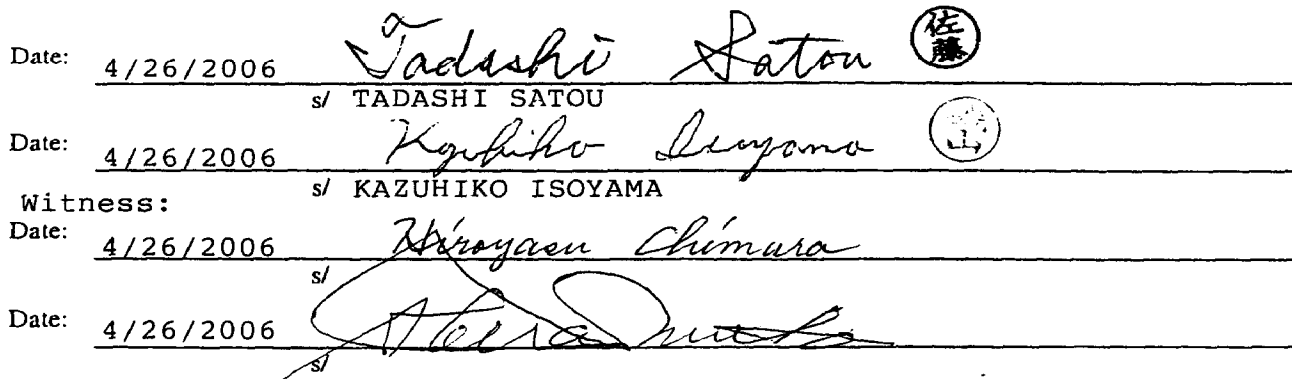 Date: 4/26/2006 Tadashi Satou 佐藤
s/ TADASHI SATOU
Date: 4/26/2006 Kazuhiko Isoyama 山
s/ KAZUHIKO ISOYAMA
Witness:
Date: 4/26/2006 Hiroyasu Chimura
s/
Date: 4/26/2006
s/